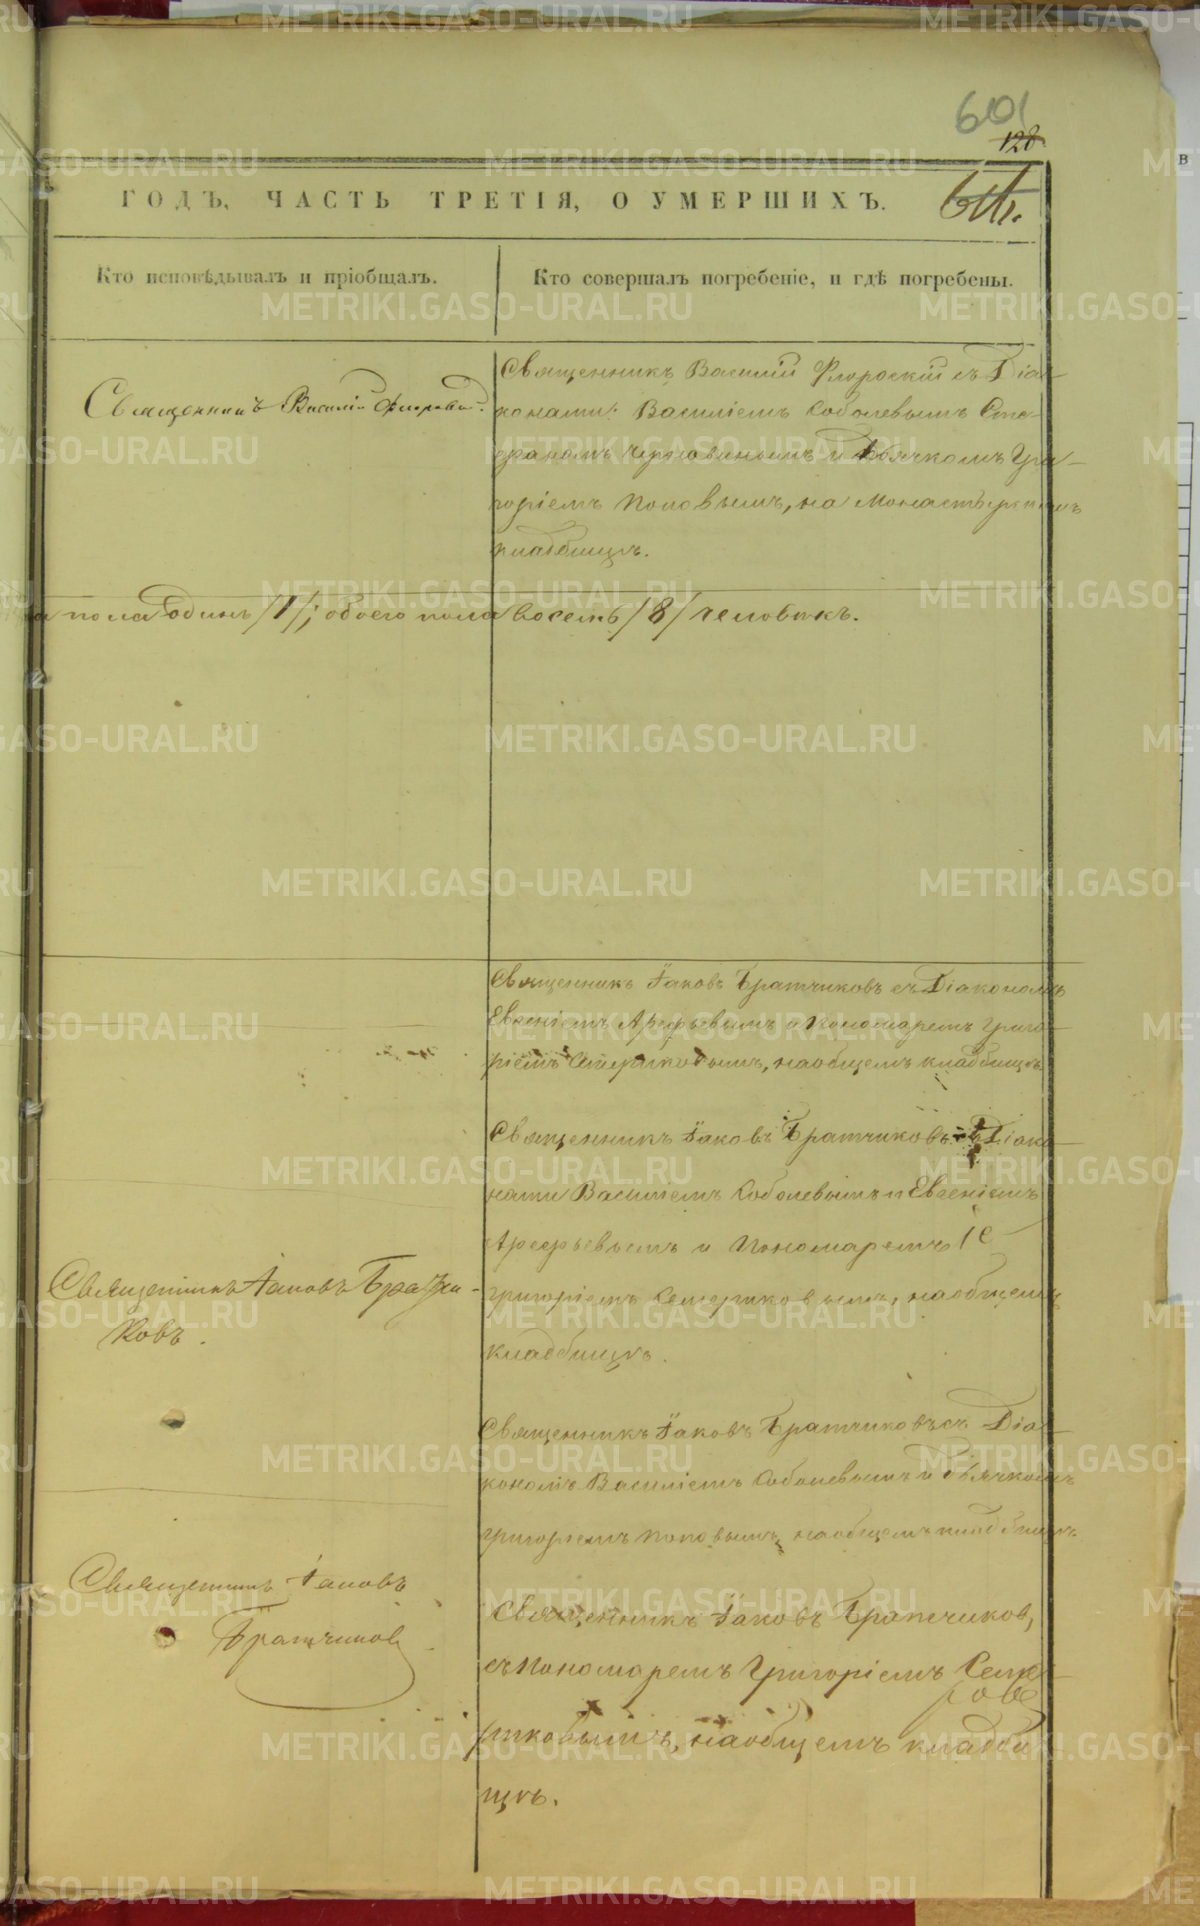 601
128
ГОДЪ, ЧАСТЬ ТРЕТІЯ, О УМЕРШИХЪ.
Кто исповѣдывалъ и пріобщалъ.
Кто совершалъ погребеніе, и гдѣ погребены.
Священникъ Василій
Священникъ Василій Флоровскій съ Діа-
конами: Василіемъ Соболевымъ Сте-
фаномъ и Дьячкомъ Гри-
горіемъ Поповымъ, на Монастырскомъ
кладбищѣ.
а пола одинъ /1/; обоего пола восемь /8/ человѣкъ.
Священникъ Іаковъ Братчиковъ съ Діакономъ
Евгеніемъ Арефьевымъ и Пономаремъ Григо-
ріемъ наобщемъ кладбищѣ
Священникъ Іаковъ Братчиковъ съ Діако-
нами Василіемъ Соболевымъ и Евгеніемъ
Арефьевымъ и Пономаремъ
Григоріемъ наобщемъ
кладбищѣ.
Священникъ Іаковъ Братчи-
ковъ.
Священникъ Іаковъ Братчиковъ съ Діа-
кономъ Василіемъ Соболевымъ и Дьячкомъ
Григоріемъ Поповымъ, наобщемъ кладбищѣ.
Священникъ Іаковъ
Братчиковъ
Священникъ Іаковъ Братчиковъ,
съ Пономаремъ Григоріемъ
наобщемъ кладби
щѣ.
METRIKI.GASO-URAL.RU